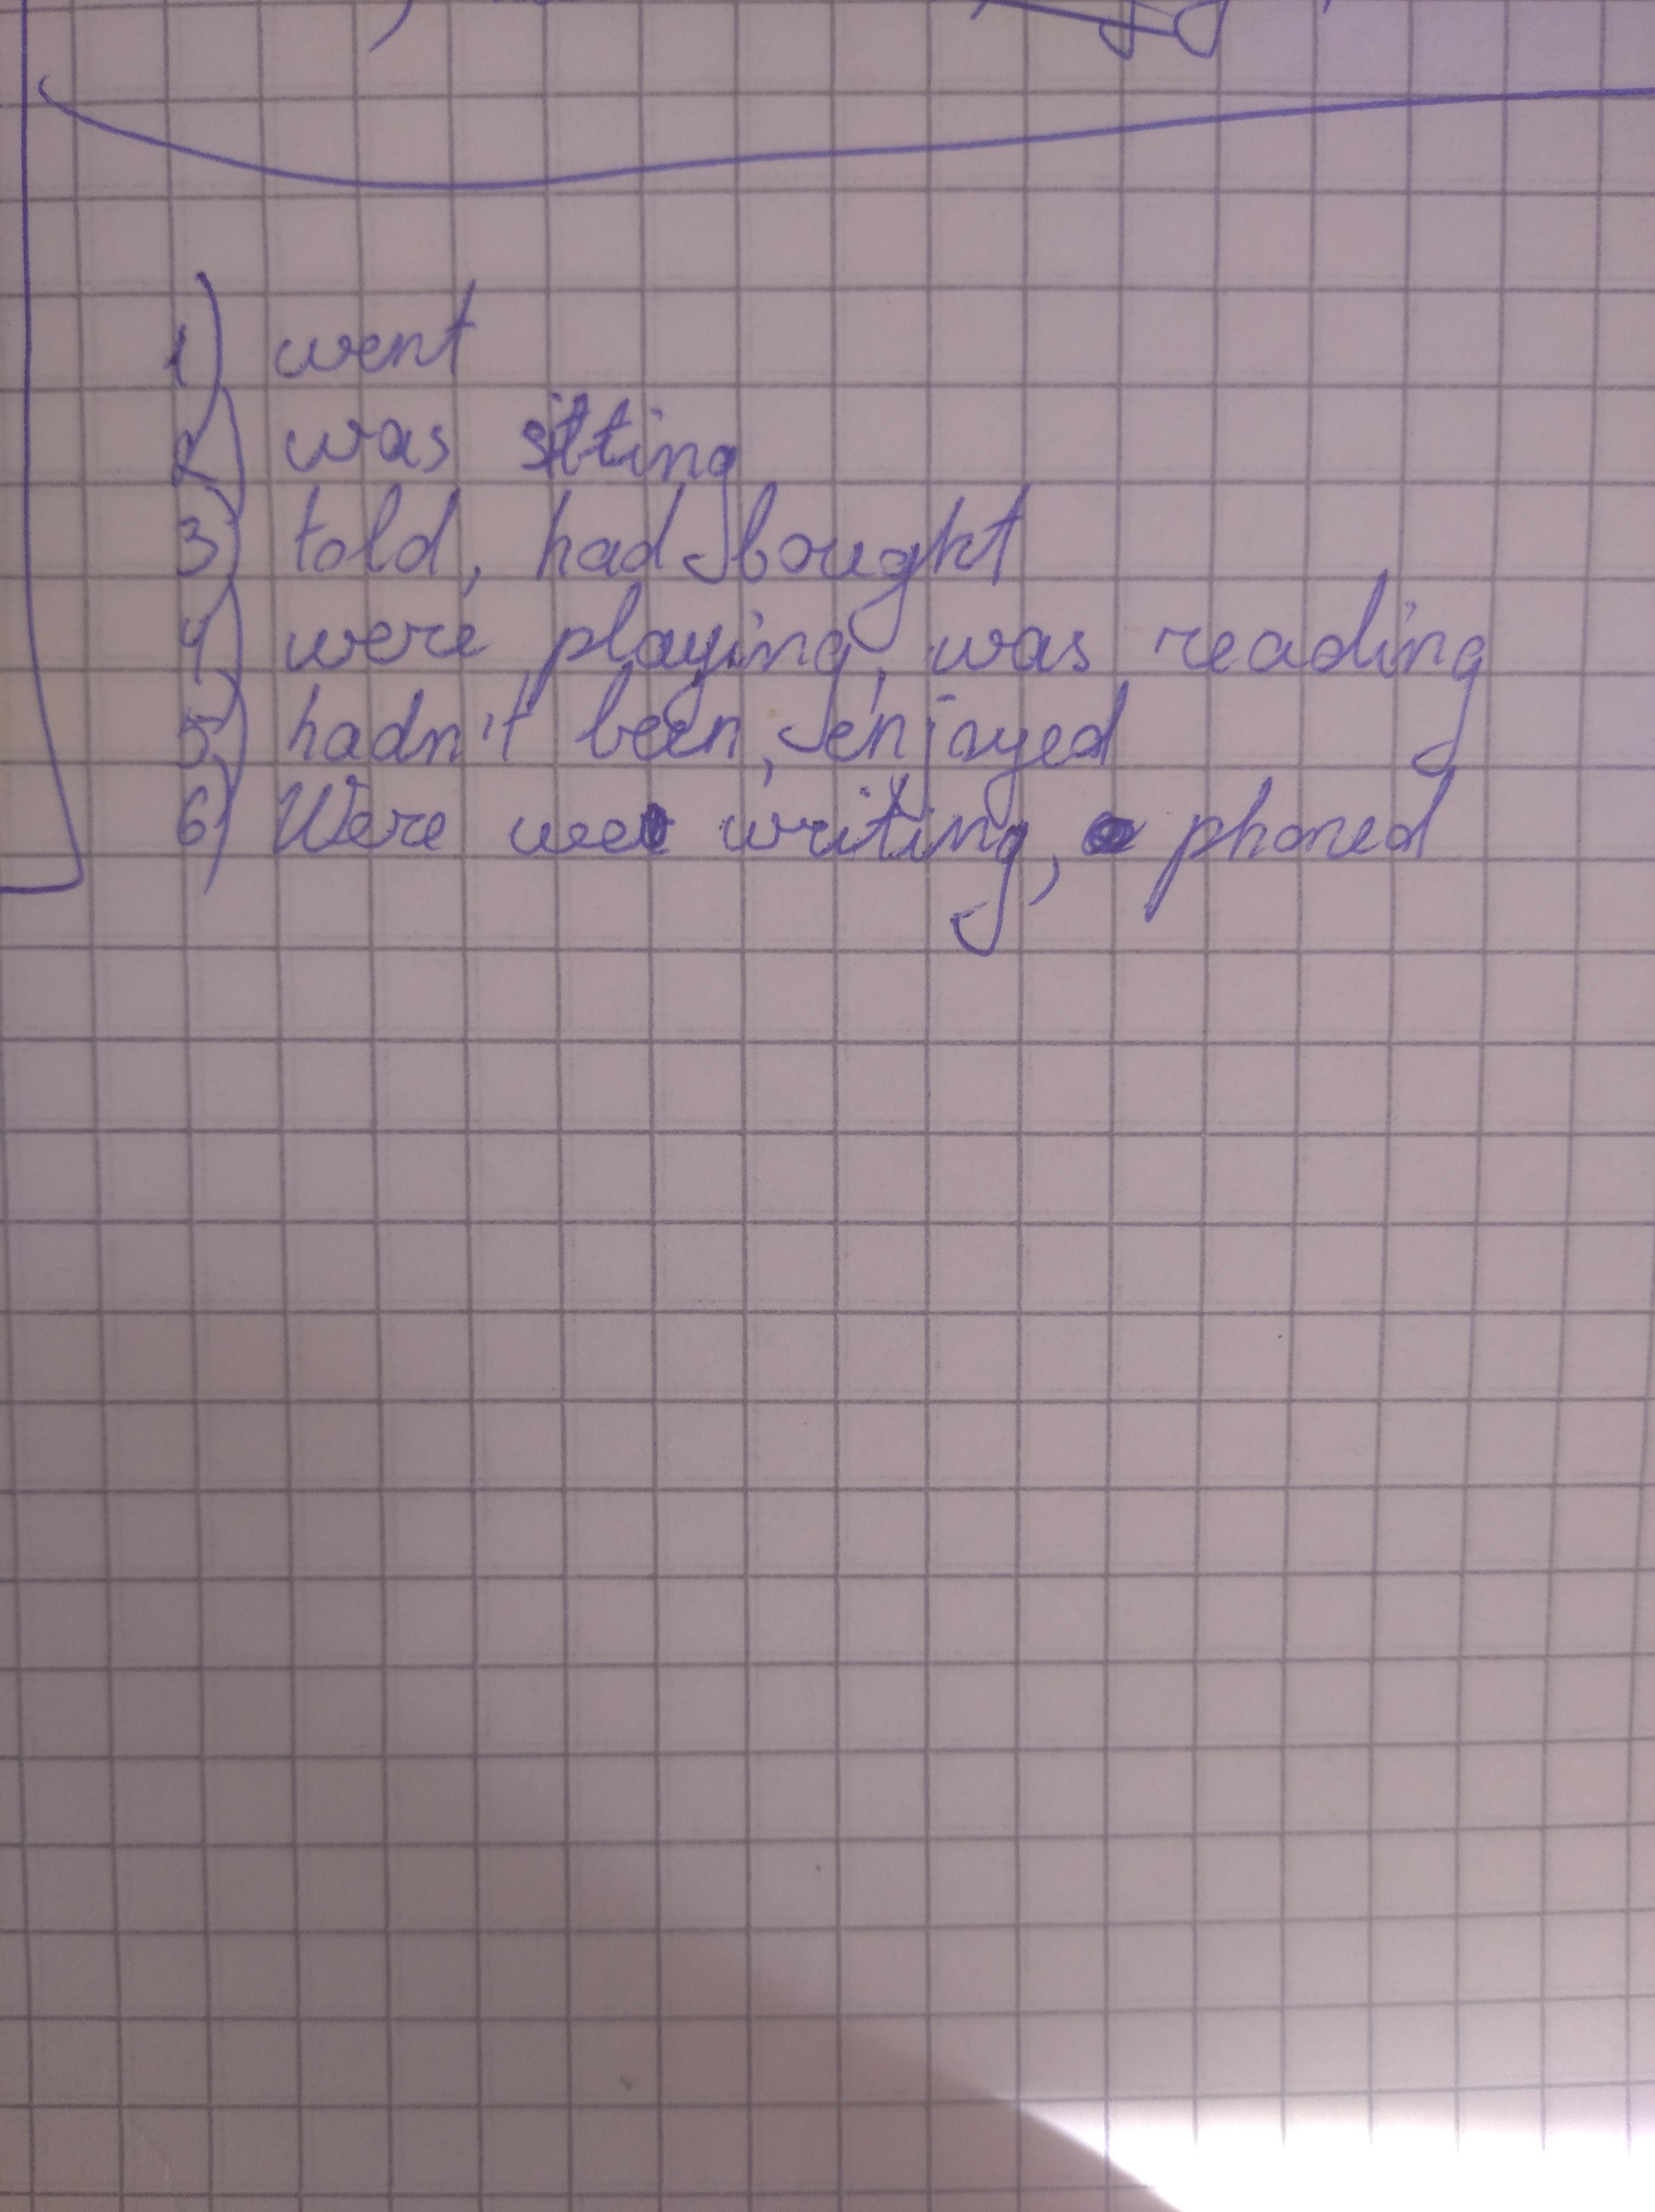 1) went
2) was sitting
3) told, had bought
4) were playing, was reading
5) hadn't been, enjoyed
6) Were writing, phoned